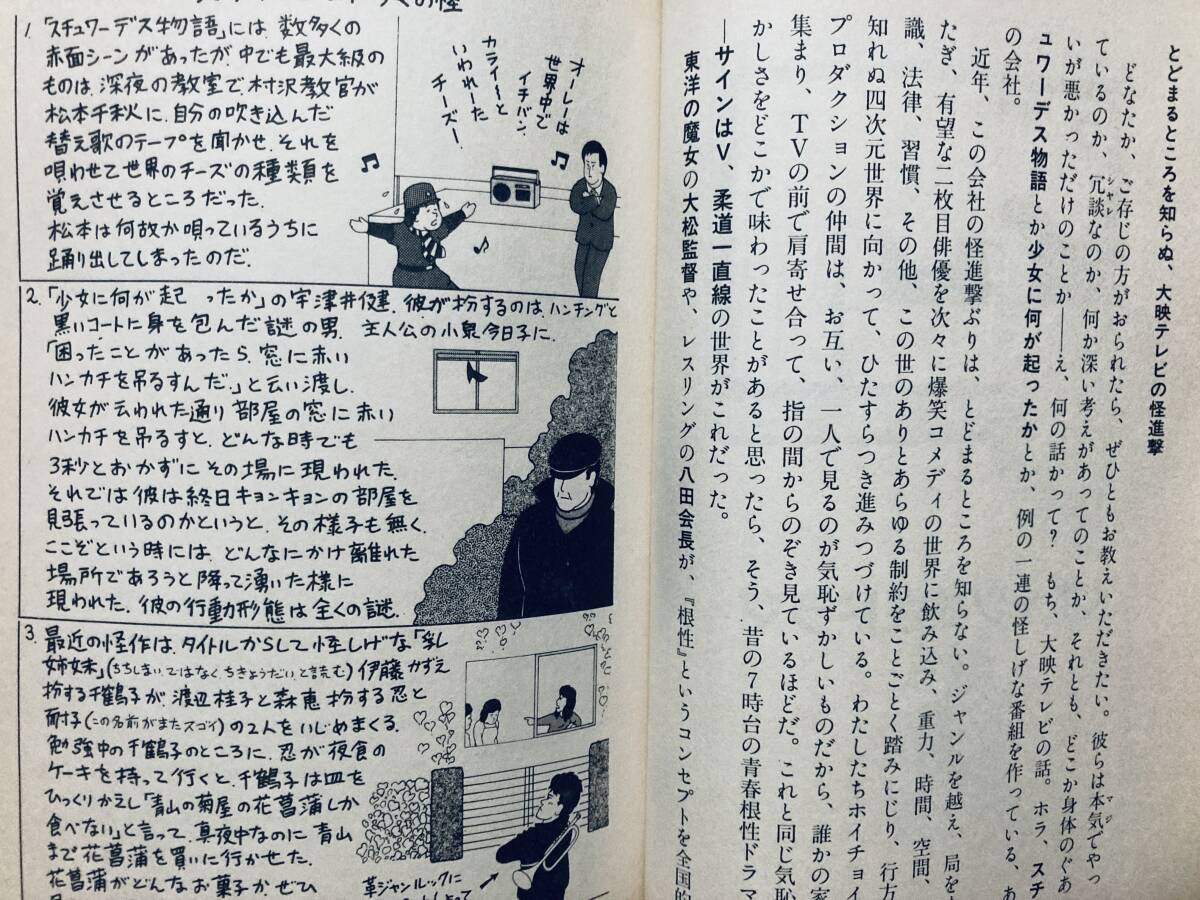 とどまるところを知らぬ、大映テレビの怪進撃
どなたか、ご存じの方がおられたら、ぜひともお教えいただきたい。彼らは本気でやっ
マジ
ているのか、冗談なのか、何か深い考えがあってのことか、それとも、どこか身体のぐあ
シャレ
いが悪かっただけのことか――え、何の話かって? もち、大映テレビの話。ホラ、スチ
ュワーデス物語とか少女に何が起ったかとか、例の一連の怪しげな番組を作っている、あ
の会社。
近年、この会社の怪進撃ぶりは、とどまるところを知らない。ジャンルを越え、局を
たぎ、有望な二枚目俳優を次々に爆笑コメディの世界に飲み込み、重力、時間、空間、
識、法律、習慣、その他、この世のありとあらゆる制約をことごとく踏みにじり、行方
知れぬ四次元世界に向かって、ひたすらつき進みつづけている。わたしたちホイチョイ
プロダクションの仲間は、お互い、一人で見るのが気恥ずかしいものだから、誰かの家
集まり、TVの前で肩寄せ合って、指の間からのぞき見ているほどだ。これと同じ気恥
かしさをどこかで味わったことがあると思ったら、そう、昔の7時台の青春根性ドラマ
―サインはV、柔道一直線の世界がこれだった。
東洋の魔女の大松監督や、レスリングの八田会長が、『根性』というコンセプトを全国的
1. 「スチュワーデス物語」には、数多くの
赤面シーンがあったが、中でも最大級の
ものは、深夜の教室で、村沢教官が
松本千秋に、自分の吹き込んだ
替え歌のテープを聞かせ、それを
唄わせて世界のチーズの種類を
覚えさせるところだった。
松本は何故か唄っているうちに
踊り出してしまったのだ。
オーレーは
世界中で
イチバン、
カライーと
いわれーた
チーズー!
2. 「少女に何が起ったか」の宇津井健。彼が扮するのは、ハンチングと
黒いコートに身を包んだ謎の男。主人公の小泉今日子に、
「困ったことがあったら、窓に赤い
ハンカチを吊るすんだ。」と云い渡し、
彼女が云われた通り部屋の窓に赤い
ハンカチを吊るすと、どんな時でも
3秒とおかずにその場に現われた。
それでは彼は終日キョンキョンの部屋を
見張っているのかというと、その様子も無く、
ここぞという時には、どんなにかけ離れた
場所であろうと降って湧いた様に
現われた。彼の行動形態は全くの謎。
3. 最近の怪作は、タイトルからして怪しげな「乳
姉妹」(ちちしまい、ではなく、ちきょうだい、と読む)伊藤かずえ
扮する千鶴子が、渡辺桂子と森恵扮する忍と
耐子(この名前がまたスゴイ)の2人をいじめまくる。
勉強中の千鶴子のところに、忍が夜食の
ケーキを持って行くと、千鶴子は皿を
ひっくりかえし「青山の菊屋の花菖蒲しか
食べない」と言って、真夜中なのに青山
まで花菖蒲を買いに行かせた。
花菖蒲がどんなお菓子か、ぜひ
革ジャンルックに